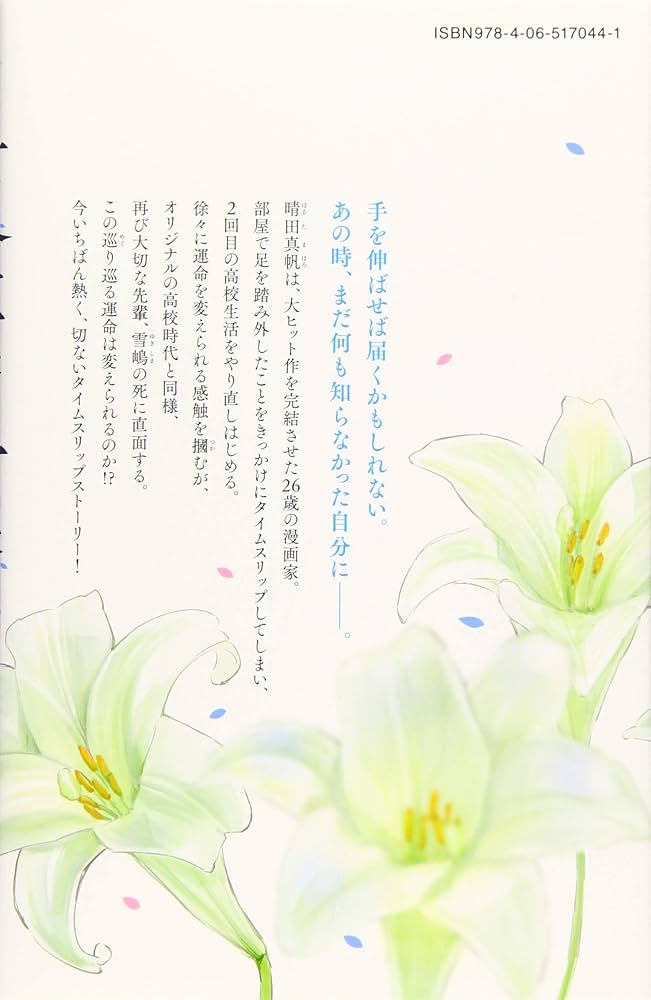 ISBN978-4-06-517044-1
手を伸ばせば届くかもしれない。
あの時、まだ何も知らなかった自分に――。
晴田真帆は、大ヒット作を完結させた26歳の漫画家。
部屋で足を踏み外したことをきっかけにタイムスリップしてしまい、
2回目の高校生活をやり直しはじめる。
徐々に運命を変えられる感触を摑むが、
オリジナルの高校時代と同様、
再び大切な先輩、雪嶋の死に直面する。
この巡り巡る運命は変えられるのか!?
今いちばん熱く、切ないタイムスリップストーリー!